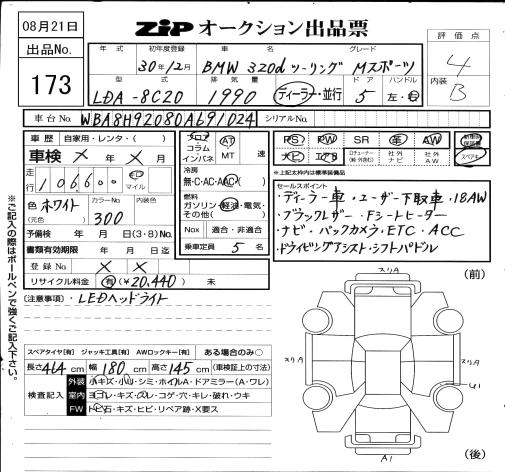 08月21日
ZiP オークション出品票
出品No.
173
評価点
4
内装
B
年式 初年度登録 車名 グレード
30年12月 BMW 320d ツーリング Mスポーツ
型式 排気量 ドア ハンドル
LDA-8C20 1990 ディーラー・並行 5 左・右
車台No. WBA8H92080A691024 シリアルNo.
車歴 自家用・レンタ・( )
車検 × 年 × 月
走行 106,600 km マイル
色 ホワイト カラーNo. 300 内装色
(元色)
予備検 年 月 日(3・8)No.
書類有効期限 年 月 日迄
登録No. × ×
リサイクル料金 有(¥20,440) 未
フロア
コラム
インパネ
AT
MT 速
冷房
無・C・AC・AAC
燃料
ガソリン・軽油・電気・
その他( )
Nox 適合・非適合
乗車定員 5 名
PS PW SR 革 AW
ナビ エアB 社外ナビ 社外AW
新車時保証書
スペアキー
※上記太枠内は標準装備品
セールスポイント
・ディーラー車・ユーザー下取車・18AW
・ブラックレザー・Fシートヒーター
・ナビ・バックカメラ・ETC・ACC
・ドライビングアシスト・シフトパドル
(注意事項)・LEDヘッドライト
※ご記入の際はボールペンで強くご記入下さい。
スペアタイヤ[有] ジャッキ工具[有] AWロックキー[有] ある場合のみ○
長さ 464 cm 幅 180 cm 高さ 145 cm (車検証上の寸法)
検査記入
外装 小キズ・小凹・シミ・ホイルA・ドアミラー(A・ワレ)
室内 ヨゴレ・キズ・スレ・コゲ・穴・キレ・破れ・ウキ
FW トビ石・キズ・ヒビ・リペア跡・X要ス
(前)
スリA
スリA
スリA
U1
A1
(後)